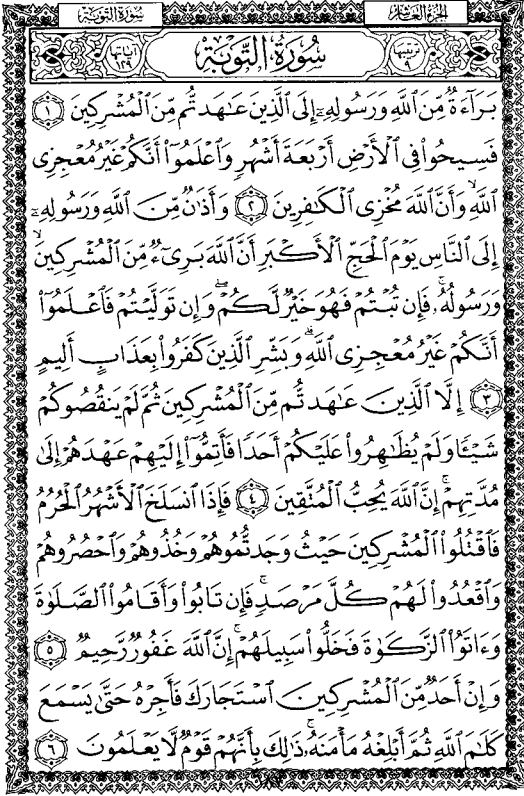 سورة التوبة
الجزء العاشر
ترتيبها ٩
سُورَةُ التَّوْبَةِ
آياتها ١٢٩
بَرَآءَةٌ مِّنَ ٱللَّهِ وَرَسُولِهِۦٓ إِلَى ٱلَّذِينَ عَٰهَدتُّم مِّنَ ٱلْمُشْرِكِينَ ١
فَسِيحُوا۟ فِى ٱلْأَرْضِ أَرْبَعَةَ أَشْهُرٍ وَٱعْلَمُوٓا۟ أَنَّكُمْ غَيْرُ مُعْجِزِى
ٱللَّهِ ۙ وَأَنَّ ٱللَّهَ مُخْزِى ٱلْكَٰفِرِينَ ٢ وَأَذَٰنٌ مِّنَ ٱللَّهِ وَرَسُولِهِۦٓ
إِلَى ٱلنَّاسِ يَوْمَ ٱلْحَجِّ ٱلْأَكْبَرِ أَنَّ ٱللَّهَ بَرِىٓءٌ مِّنَ ٱلْمُشْرِكِينَ ۙ
وَرَسُولُهُۥ ۚ فَإِن تُبْتُمْ فَهُوَ خَيْرٌ لَّكُمْ ۖ وَإِن تَوَلَّيْتُمْ فَٱعْلَمُوٓا۟
أَنَّكُمْ غَيْرُ مُعْجِزِى ٱللَّهِ ۗ وَبَشِّرِ ٱلَّذِينَ كَفَرُوا۟ بِعَذَابٍ أَلِيمٍ
٣ إِلَّا ٱلَّذِينَ عَٰهَدتُّم مِّنَ ٱلْمُشْرِكِينَ ثُمَّ لَمْ يَنقُصُوكُمْ
شَيْـًٔا وَلَمْ يُظَٰهِرُوا۟ عَلَيْكُمْ أَحَدًا فَأَتِمُّوٓا۟ إِلَيْهِمْ عَهْدَهُمْ إِلَىٰ
مُدَّتِهِمْ ۚ إِنَّ ٱللَّهَ يُحِبُّ ٱلْمُتَّقِينَ ٤ فَإِذَا ٱنسَلَخَ ٱلْأَشْهُرُ ٱلْحُرُمُ
فَٱقْتُلُوا۟ ٱلْمُشْرِكِينَ حَيْثُ وَجَدتُّمُوهُمْ وَخُذُوهُمْ وَٱحْصُرُوهُمْ
وَٱقْعُدُوا۟ لَهُمْ كُلَّ مَرْصَدٍ ۚ فَإِن تَابُوا۟ وَأَقَامُوا۟ ٱلصَّلَوٰةَ
وَءَاتَوُا۟ ٱلزَّكَوٰةَ فَخَلُّوا۟ سَبِيلَهُمْ ۚ إِنَّ ٱللَّهَ غَفُورٌ رَّحِيمٌ ٥
وَإِنْ أَحَدٌ مِّنَ ٱلْمُشْرِكِينَ ٱسْتَجَارَكَ فَأَجِرْهُ حَتَّىٰ يَسْمَعَ
كَلَٰمَ ٱللَّهِ ثُمَّ أَبْلِغْهُ مَأْمَنَهُۥ ۚ ذَٰلِكَ بِأَنَّهُمْ قَوْمٌ لَّا يَعْلَمُونَ ٦